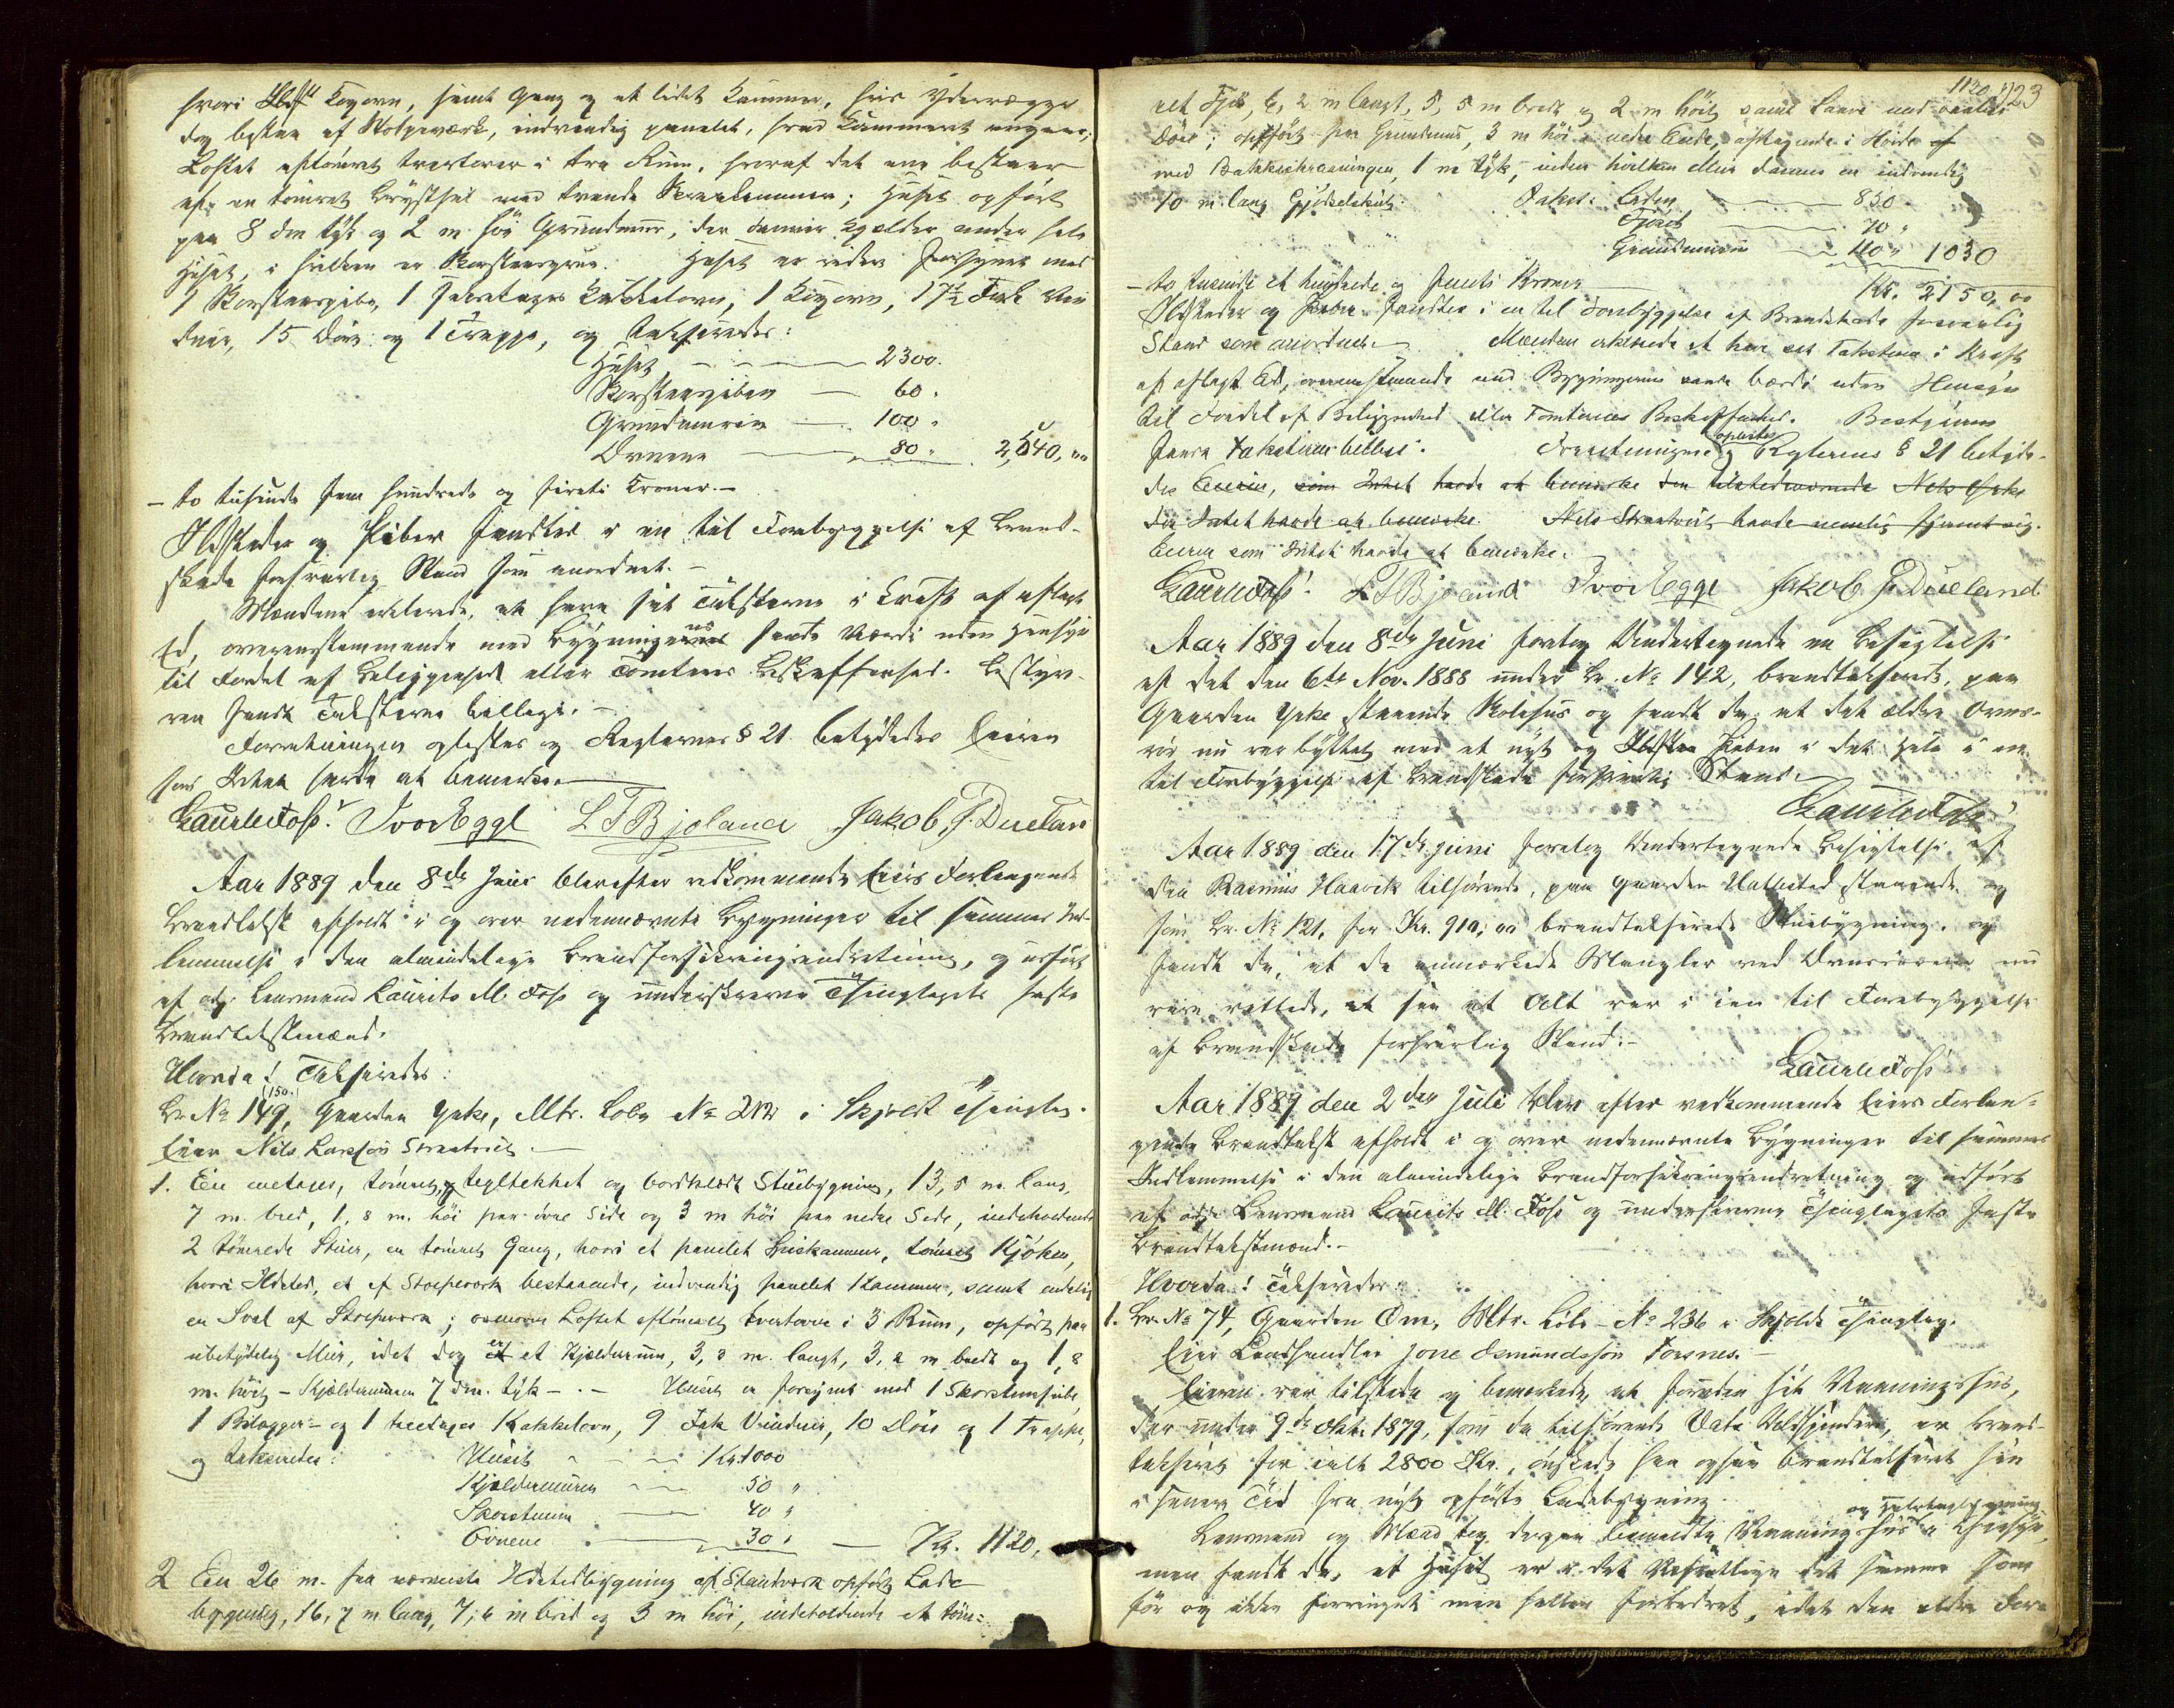 hvori Kogovn, samt Gang og et lidet Kammer, hvis Ydervægge
dog bestaa af Stolpeværk, indvendig panelet, hvad Kammeret angaar;
Loftet aftømret tvertover i tre Rum, hvoraf det ene bestaar
af en tømret Brysthal med tvende Kammer; Huset opført
paa 8 dm tyk og 2 m. høi Grundmur, der danner Kjælder under hele
Huset, i hvilken er Skorstensgrue. Huset er videre forsynet med
1 Skorstenspibe, 1 Kakkelovn, 1 Kogovn, 17½ Fark Vin-
duer, 15 Døre og 1 Trappe, og takseredes:
Huset — 2300.
Skorstenspiben — 60 "
Grundmuren — 100 "
Ovnene — 80 " 2,540, "
— to tusinde fem hundrede og fireti Kroner. —
Ildsteder og Piber fandtes i en til Forebyggelse af Brand-
skade forsvarlig Stand som anordnet. —
Mændene erklærede, at have sat Taksterne i Kraft af aflagt
Ed, overensstemmende med Bygningernes sande Værdi uden Hensyn
til Fordel af Beliggenhed eller Tomternes Beskaffenhed. Besty-
ren fandt Taksterne billige. —
Forretningen oplæstes og Reglernes § 21 betydedes Eieren
som Intet havde at bemærke. —
Laur. M. Foss. Ivor Egge L T Bjoland Jakob J. Dueland
Aar 1889 den 8de Juni blev efter vedkommende Eiers Forlangende
Brandtakst afholdt i og over nedennævnte Bygninger til sammes Ind-
lemmelse i den almindelige Brandforsikringsindretning, og udført
af adj. Lensmand Laurits M. Foss og underskrevne Thinglagets faste
Brandtakstmænd.
Hvorda! Takseredes:
(150.)
Br. No 149, Gaarden Yrke, Mtr. Løbe No 212 i Skjold Thinglag.
Eier Nils Larsson
1. En toetages, tømret, tegltækket og bordklædt Stuebygning, 13,5 m. lang,
7 m. bred, 1,8 m. høi paa øvre Side og 3 m høi paa nedre Side, indeholdende
2 tømrede Stuer, en tømret Gang, hvori et panelet Spiskammer, tømret Kjøken,
hvori Ildsted, et af Stolpeværk bestaaende, indvendig panelet Kammer, samt endelig
en Sval af Stolpeværk; ovenover Loftet aftømret tvertover i 3 Rum, opført paa
ubetydelig Mur, idet dog er et Kjælderrum, 3,8 m. langt, 3,2 m bredt og 1,8
m. høit — Kjældermuren 7 dm. tyk —. — Huset er forsynet med 1 Skorstenspibe,
1 Bilægger- og 1 treetages Kakkelovn, 9 Fark Vinduer, 10 Døre og 1 Trappe,
og takseredes: Huset — Kr. 1000
Kjældermuren — 50 "
Skorstenen — 40 "
Ovnene — 30 " — Kr. 1120,
2 En 26 m. fra nærmeste Ildstedbygning af Stavværk opført Lade-
bygning, 16,7 m lang, 7,6 m bred og 3 m høi, indeholdende et tøm-
1120, 1123
ret Fjøs, 6,2 m langt, 5,5 m bredt og 2 m høit samt Laave med
Døre; opført paa Grundmur, 3 m høi i nedre Ende, aftagende i Høide
med Bakkeskraaningen, 1 m tyk, inden hvilken Mur dannes en indvendig
10 m. lang Gjødselskut. Takst: Laden — 850
Fjøset — 70 "
Grundmuren — 110 " 1030
— to tusinde et hundrede og femti Kroner — Kr. 2150,00
Ildsteder og Piber fandtes i en til Forebyggelse af Brandskade forsvarlig
Stand som anordnet. — Mændene erklærede at have sat Taksterne i Kraft
af aflagt Ed, overensstemmende med Bygningernes sande Værdi uden Hensyn
til Fordel af Beliggenhed eller Tomternes Beskaffenhed. Bestyreren
fandt Taksterne billige. Forretningen oplæstes og Reglernes § 21 betyde-
des Eieren, som Intet havde at bemærke den tilstedeværende Nels
der Intet havde at bemærke. Nils havde nemlig
Eieren som Intet havde at bemærke.
Laur. M. Foss. L T Bjoland Ivor Egge Jakob J. Dueland
Aar 1889 den 8de Juni foretog Undertegnede en Besigtelse
af det den 6te Nov. 1888 under Br. No 142, brandtakserede, paa
Gaarden Yrke staaende Skolehus og fandt da, at det ældre Ovns-
rør nu var byttet med et nyt og Piben i det Hele i en
til Forebyggelse af Brandskade forsvarlig Stand. —
Laur. M. Foss
Aar 1889 den 17de Juni foretog Undertegnede Besigtelse af
den Rasmus Haavik tilhørende, paa Gaarden staaende og
som Br. No 121, for Kr. 910,00 brandtakserede Stuebygning, og
fandt da, at de anmærkede Mangler ved Ovnsrørene nu
vare rettede, saa at Alt var i en til Forebyggelse
af Brandskade forsvarlig Stand. —
Laur. M. Foss
Aar 1889 den 2den Juli blev efter vedkommende Eiers Forlan-
gende Brandtakst afholdt i og over nedennævnte Bygninger til sammes
Indlemmelse i den almindelige Brandforsikringsindretning og udført
af adj. Lensmand Laurits M. Foss og underskrevne Thinglagets faste
Brandtakstmænd. —
Hvorda! Takseredes:
1. Br. No 74, Gaarden Øm, Mtr. Løbe-No 236 i Skjold Thinglag.
Eier Landhandler Jone Osmundsson Forsnes. —
Eieren var tilstede og bemærkede, at foruden sit Vaaningshus,
der under 9de Oktr. 1879, som da tilhørende Vats Uldspinderi, er brand-
takseret for ialt 2800 Kr., ønskede han ogsaa brandtakseret sin
i senere Tid fra nyt opførte Ladebygning.
Lensmand og Mænd tog derpaa bemeldte Vaaningshus i Øiesyn,
men fandt da, at Huset er i det Væsentlige det samme som
før og ikke forringet men heller forbedret, idet den ældre For-